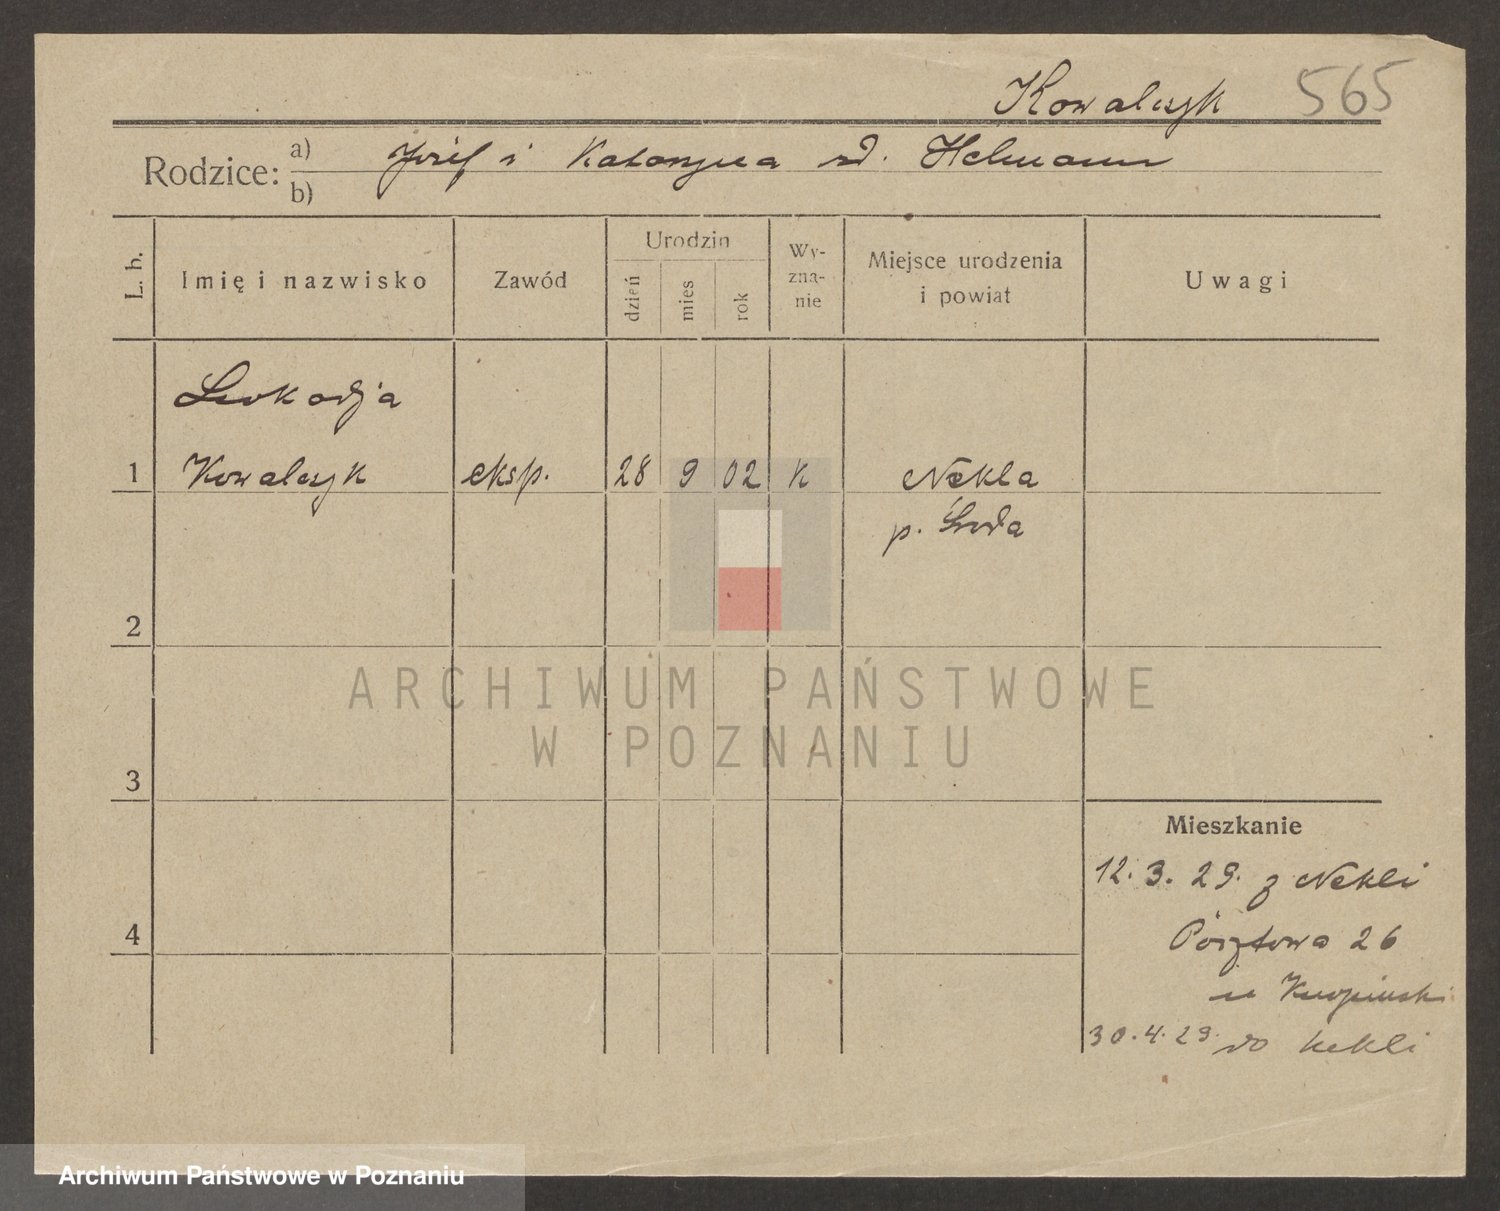 Kowalczyk 565
Rodzice: a) Józef i Katarzyna rd. Helmann
b)
L. b. Imię i nazwisko Zawód Urodzin dzień mies rok Wy-zna-nie Miejsce urodzenia i powiat Uwagi
Leokadja
1 Kowalczyk eksp. 28 9 02 K Nekla
p. Środa
2
ARCHIWUM PAŃSTWOWE
W POZNANIU
3
Mieszkanie
12. 3. 29. z Nekli
4 Pocztowa 26
u
30. 4. 29. do Nekli
Archiwum Państwowe w Poznaniu